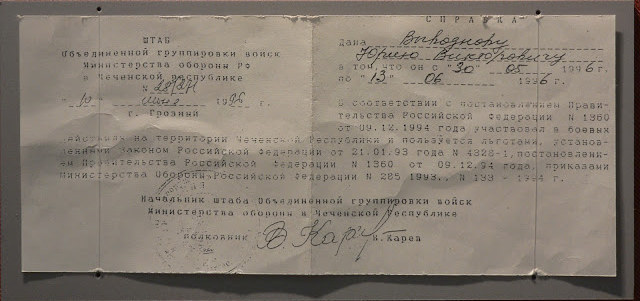 ШТАБ
Объединенной группировки войск
Министерства обороны РФ
в Чеченской Республике
N
"10" июня 1996 г.
г. Грозный
СПРАВКА
Дана Выводнору
Юрию Викторовичу
в том, что он с "30" 05 1996 г.
по "13" 06 1996 г.
В соответствии с постановлением Прави-
тельства Российской Федерации N 1360
от 09.12.1994 года участвовал в боевых
действиях на территории Чеченской Республики и пользуется льготами, установ-
ленными Законом Российской Федерации от 21.01.93 года N 4328-1, постановлени-
ем Правительства Российской Федерации N 1360 от 09.12.94 года, приказами
Министерства Обороны Российской Федерации N 265 1993.. N 133 - 1994 г.
Начальник штаба Объединенной группировки войск
Министерства обороны в Чеченской Республике
полковник В.Карев